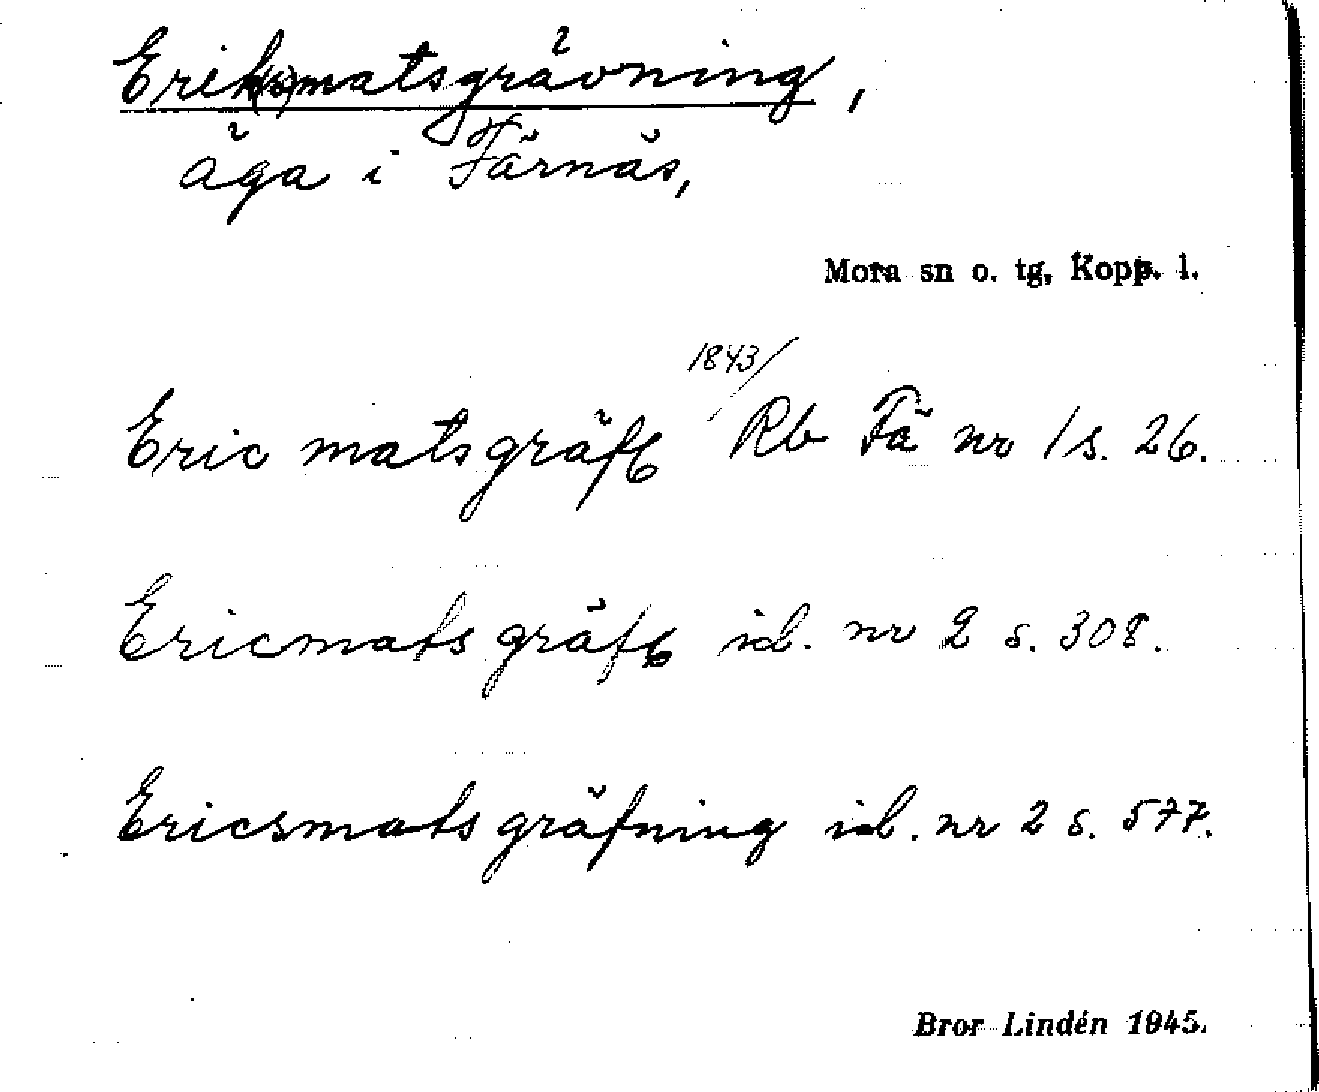 Erik(s)matsgrävning,
äga i Färnäs,
Mora sn o. tg, Kopp. l.
1843/
Eric matsgräft Rb Fä nr 1 s. 26.
Ericmats gräft id. nr 2 s. 308.
Ericsmats gräfning id. nr 2 s. 577.
Bror Lindén 1945.